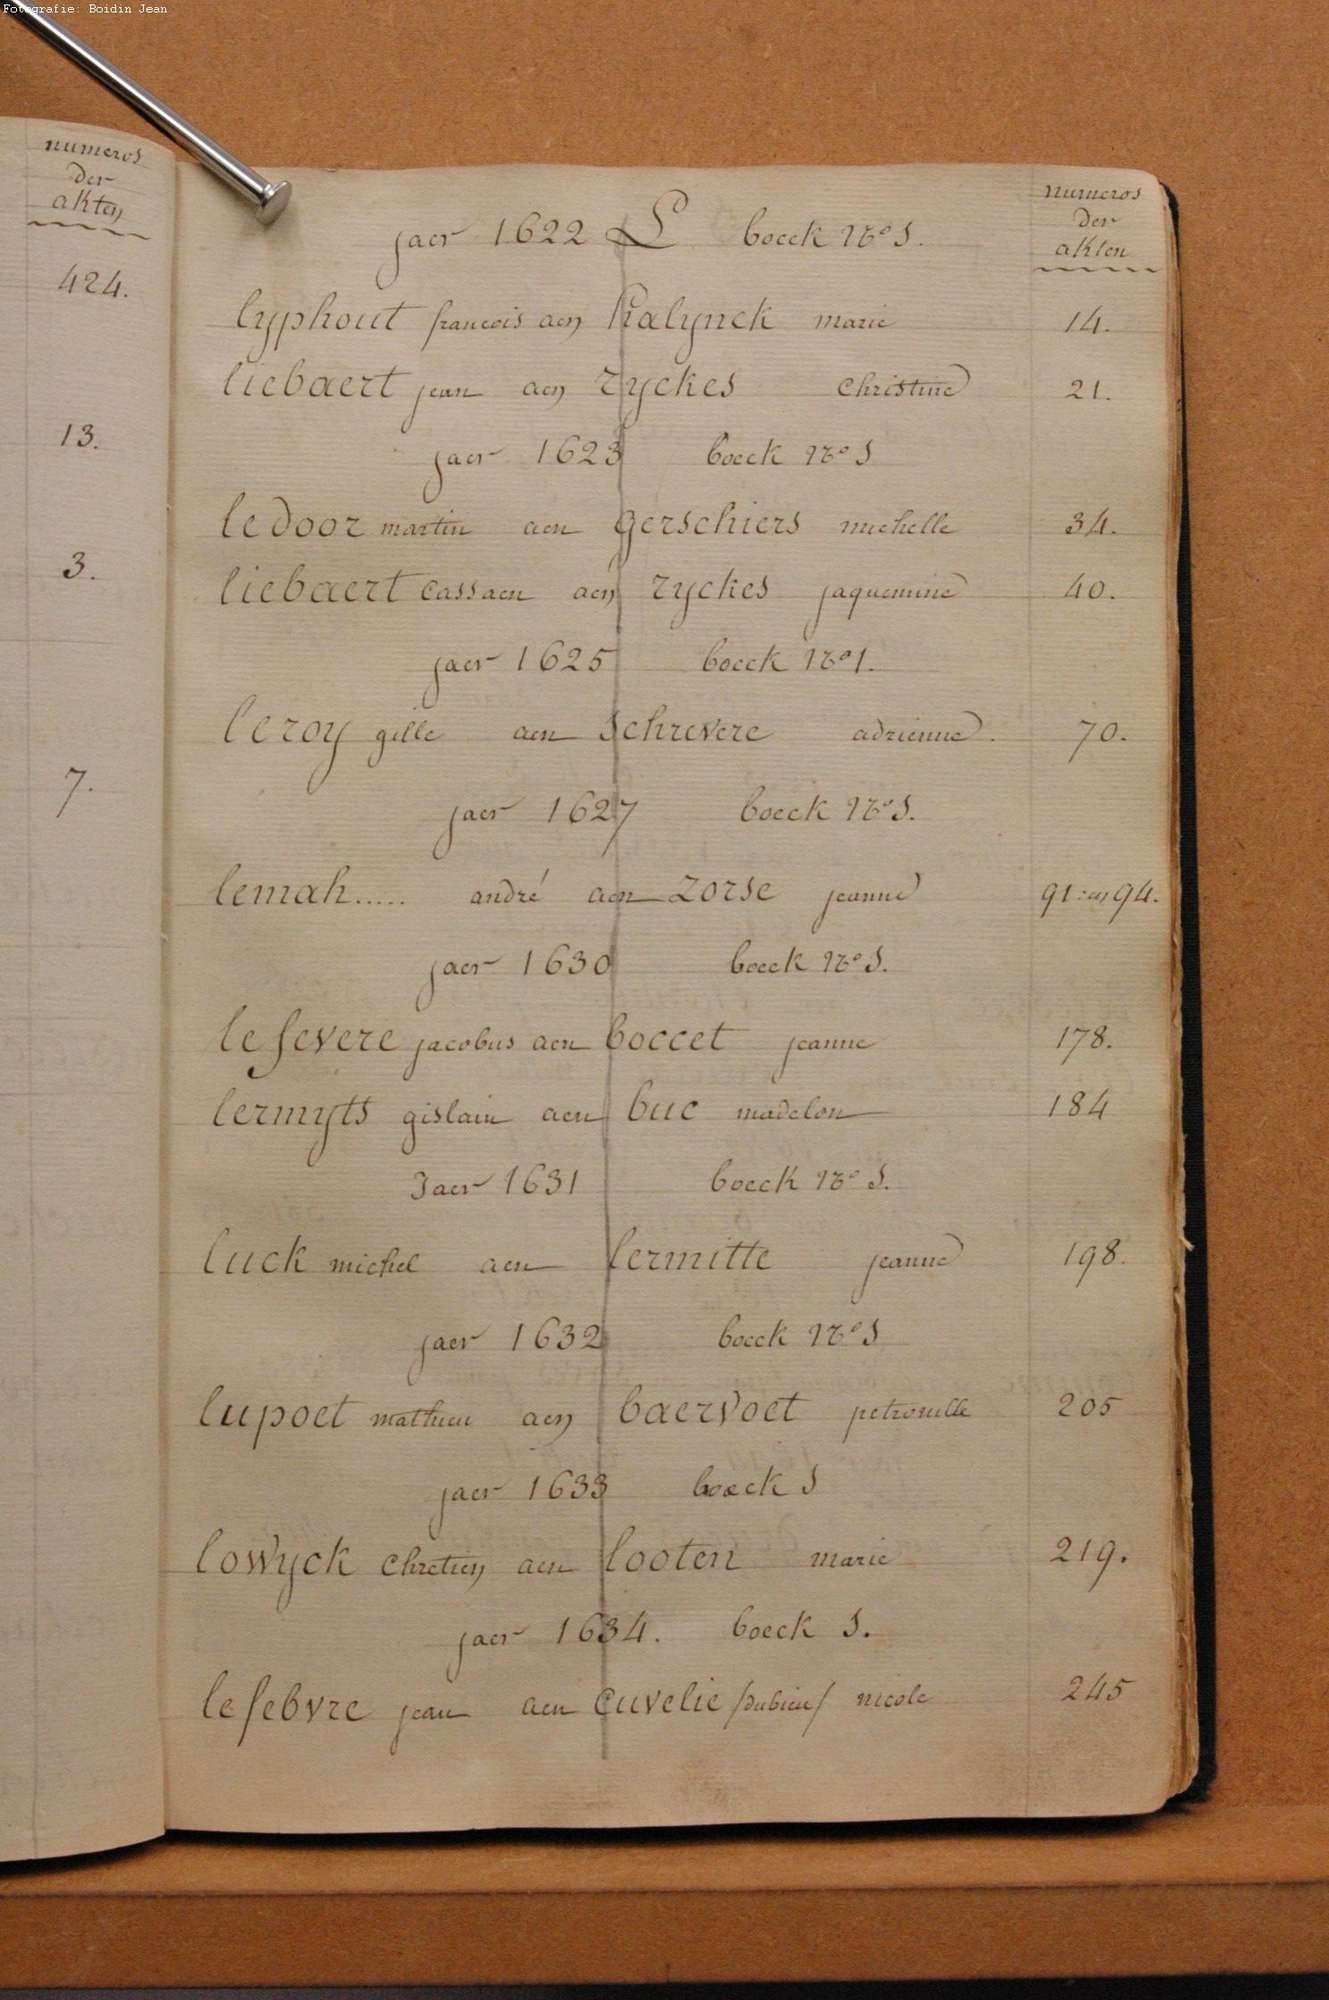 Fotografie: Boidin Jean
numeros
der
akten
424.
13.
3.
7.
numeros
der
akten
jaer 1622 L boeck No 1.
lyphout francois aen Kalynck marie 14.
liebaert jean aen ryckes christine 21.
jaer 1623 boeck No 1
ledoor martin aen gerschiers michelle 34.
liebaert cassaen aen ryckes jaquemine 40.
jaer 1625 boeck No 1.
leroy gille aen schrevere adrienne. 70.
jaer 1627 boeck No 1.
lemah..... andré aen zorse jeanne 91 en 94.
jaer 1630 boeck No 1.
lefevere jacobus aen boccet jeanne 178.
lermyts gislain aen buc madelon 184
Jaer 1631 boeck No 1.
luck michel aen lermitte jeanne 198.
jaer 1632 boeck No 1
lupoet mathieu aen baervoet petronille 205
jaer 1633 boeck 1
lowyck chretien aen looten marie 219.
jaer 1634. boeck 1.
lefebvre jean aen cuvelie /dubieu/ nicole 245